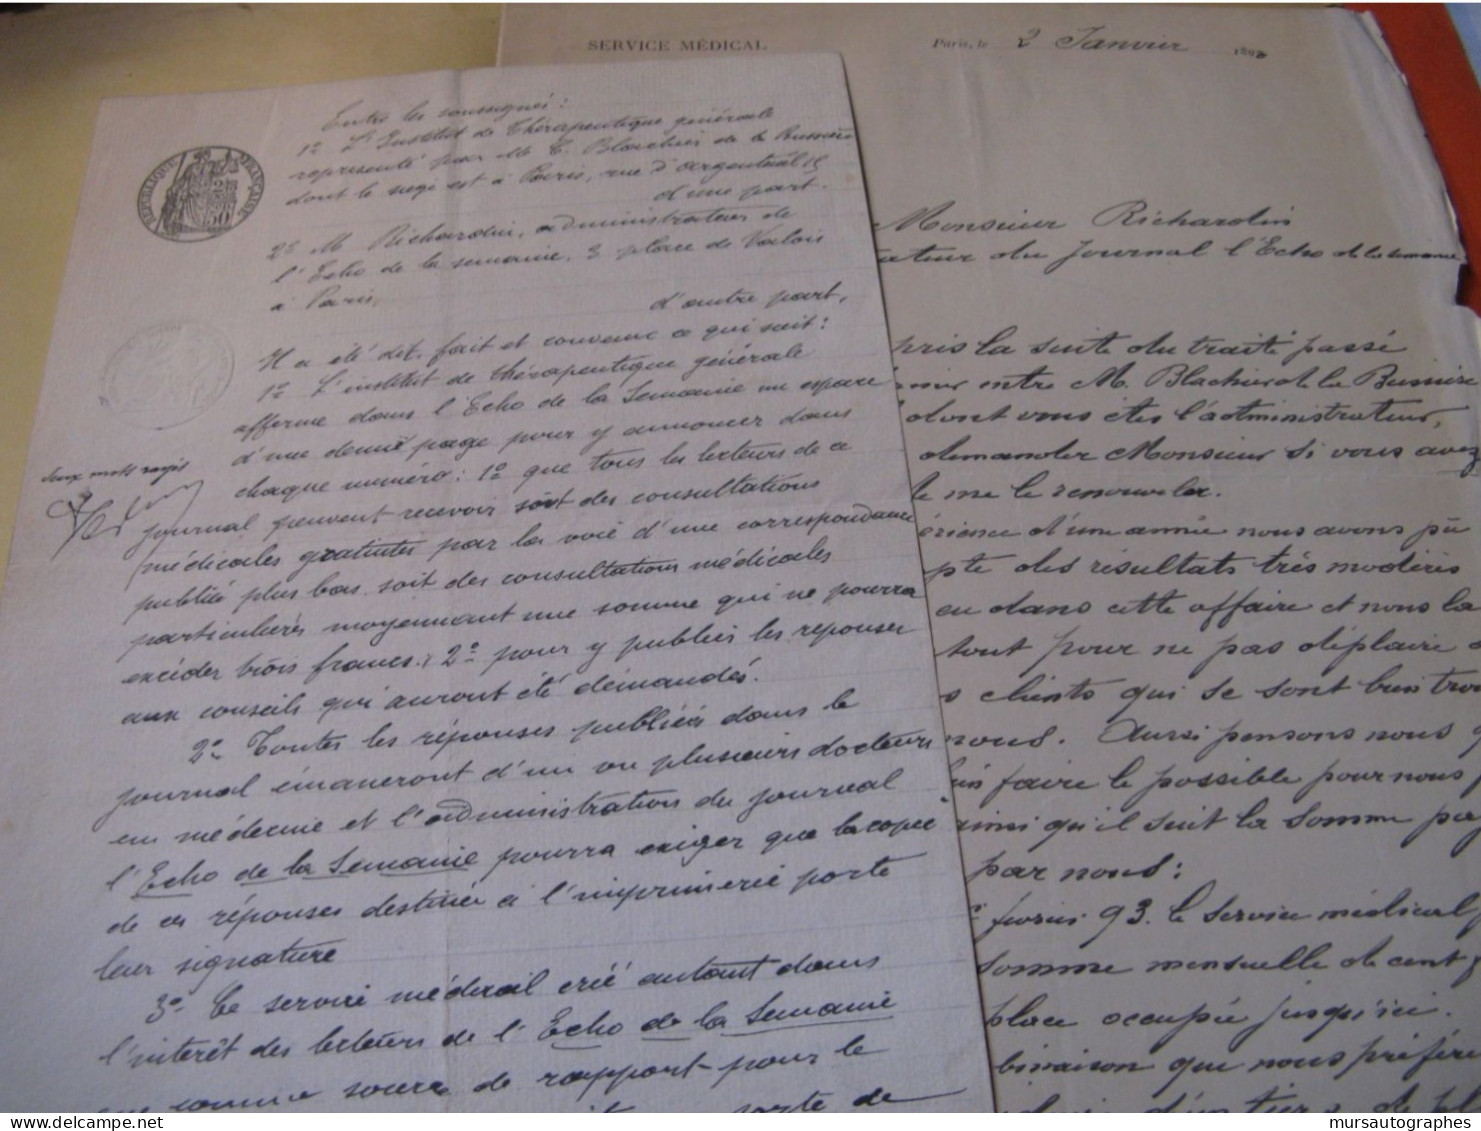 Entre les soussignés :
1º L'Institut de Thérapeutique générale
représenté par M. E. Blachier de la Bussière
dont le siège est à Paris, rue d'Argenteuil 15
d'une part.
2º M Richardin, administrateur de
l'Echo de la semaine, 3 place de Valois
à Paris,
d'autre part,
Il a été dit, fait et convenu ce qui suit :
1º L'institut de thérapeutique générale
afferme dans l'Echo de la Semaine un espace
d'une demie page pour y annoncer dans
chaque numéro : 1º que tous les lecteurs de ce
journal peuvent recevoir soit des consultations
médicales gratuites par la voie d'une correspondance
publiée plus bas, soit des consultations médicales
particulières moyennant une somme qui ne pourra
excéder trois francs ; 2º pour y publier les réponses
aux conseils qui auront été demandés.
2º Toutes les réponses publiées dans le
journal émaneront d'un ou plusieurs docteurs
en médecine et l'administration du journal
l'Echo de la Semaine pourra exiger que la copie
de ces réponses destinée à l'imprimerie porte
leur signature
3º Ce service médical créé autant dans
l'intérêt des lecteurs de l'Echo de la Semaine
que comme source de rapport pour le
porte de
deux mots rayés
REPUBLIQUE FRANÇAISE
2
50
SERVICE MÉDICAL
Paris, le 2 Janvier 1893
Monsieur Richardin
ateur du Journal l'Echo de la semaine
pris la suite du traité passé
entre M. Blachier de la Bussière
dont vous êtes l'administrateur,
demander Monsieur si vous avez
me le renouveler.
érience d'une année nous avons pû
pte des résultats très modérés
eu dans cette affaire et nous la
tout pour ne pas déplaire
s clients qui se sont bien trou
nous. Aussi pensons nous q
faire le possible pour nous
ainsi qu'il suit la somme pay
par nous :
février 93. le service médical p
somme mensuelle de cent
place occupée jusqu'ici.
que nous préfére
d'un tiers de pl
mursautographes